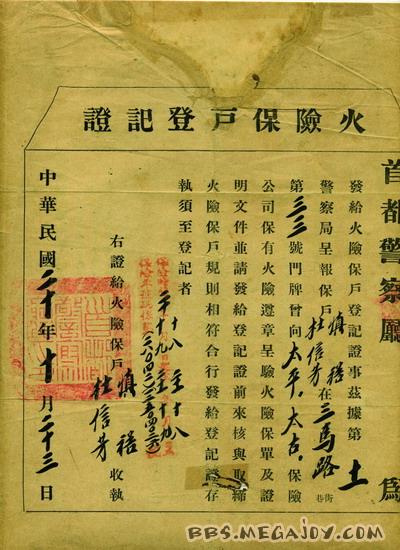 火險保戸登記證
首都警察廳　為
發給火險保戶登記證事茲據第
警察局呈報保戶　杜信芳在三馬路街巷
第三三號門牌曾向太平．太古．保險
公司保有火險遵章呈驗火險保單及證
明文件並請發給登記證前來核與取締
火險保戶規則相符合行發給登記證存
執須至登記者
右證給火險保戶　杜信芳　收執
中華民國二十年十月二十三日
BBS.MEGAJOY.COM